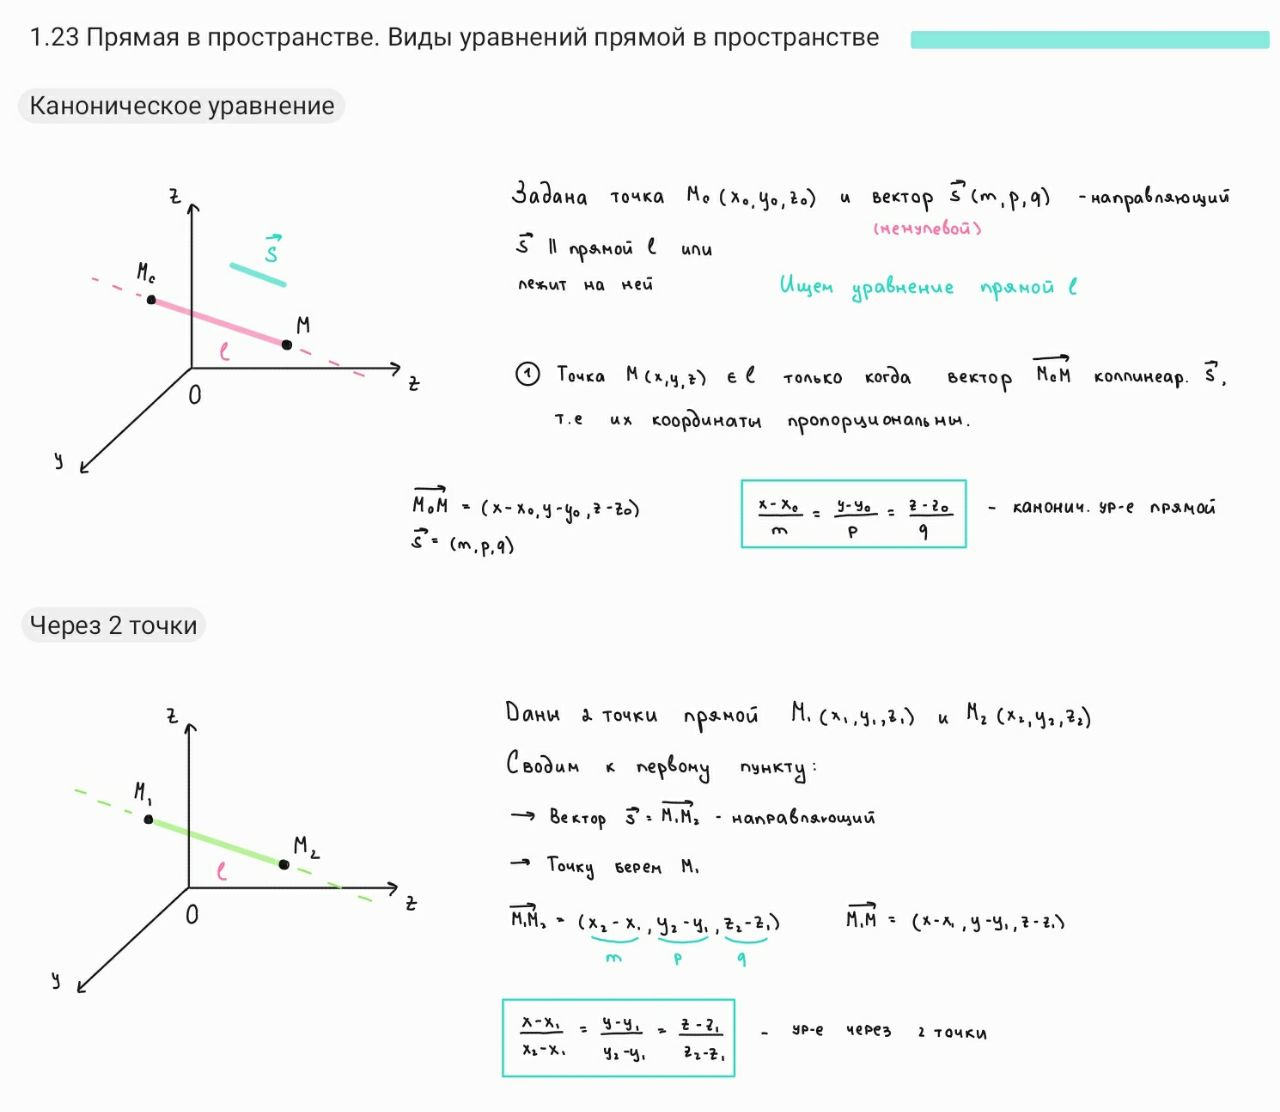 1.23 Прямая в пространстве. Виды уравнений прямой в пространстве
Каноническое уравнение
z
s⃗
M₀
M
l
O
z
y
Задана точка M₀ (x₀, y₀, z₀) и вектор s⃗ (m, p, q) - направляющий
(ненулевой)
s⃗ || прямой l или
лежит на ней
Ищем уравнение прямой l
① Точка M(x,y,z) ∈ l только когда вектор M₀M коллинеар. s⃗,
т.е их координаты пропорциональны.
M₀M = (x-x₀, y-y₀, z-z₀)
s⃗ = (m,p,q)
(x-x₀)/m = (y-y₀)/p = (z-z₀)/q - канонич. ур-е прямой
Через 2 точки
z
M₁
M₂
l
O
z
y
Даны 2 точки прямой M₁ (x₁, y₁, z₁) и M₂ (x₂, y₂, z₂)
Сводим к первому пункту:
→ Вектор s⃗ = M₁M₂ - направляющий
→ Точку берем M₁
M₁M₂ = (x₂-x₁, y₂-y₁, z₂-z₁) M₁M = (x-x₁, y-y₁, z-z₁)
m p q
(x-x₁)/(x₂-x₁) = (y-y₁)/(y₂-y₁) = (z-z₁)/(z₂-z₁) - ур-е через 2 точки